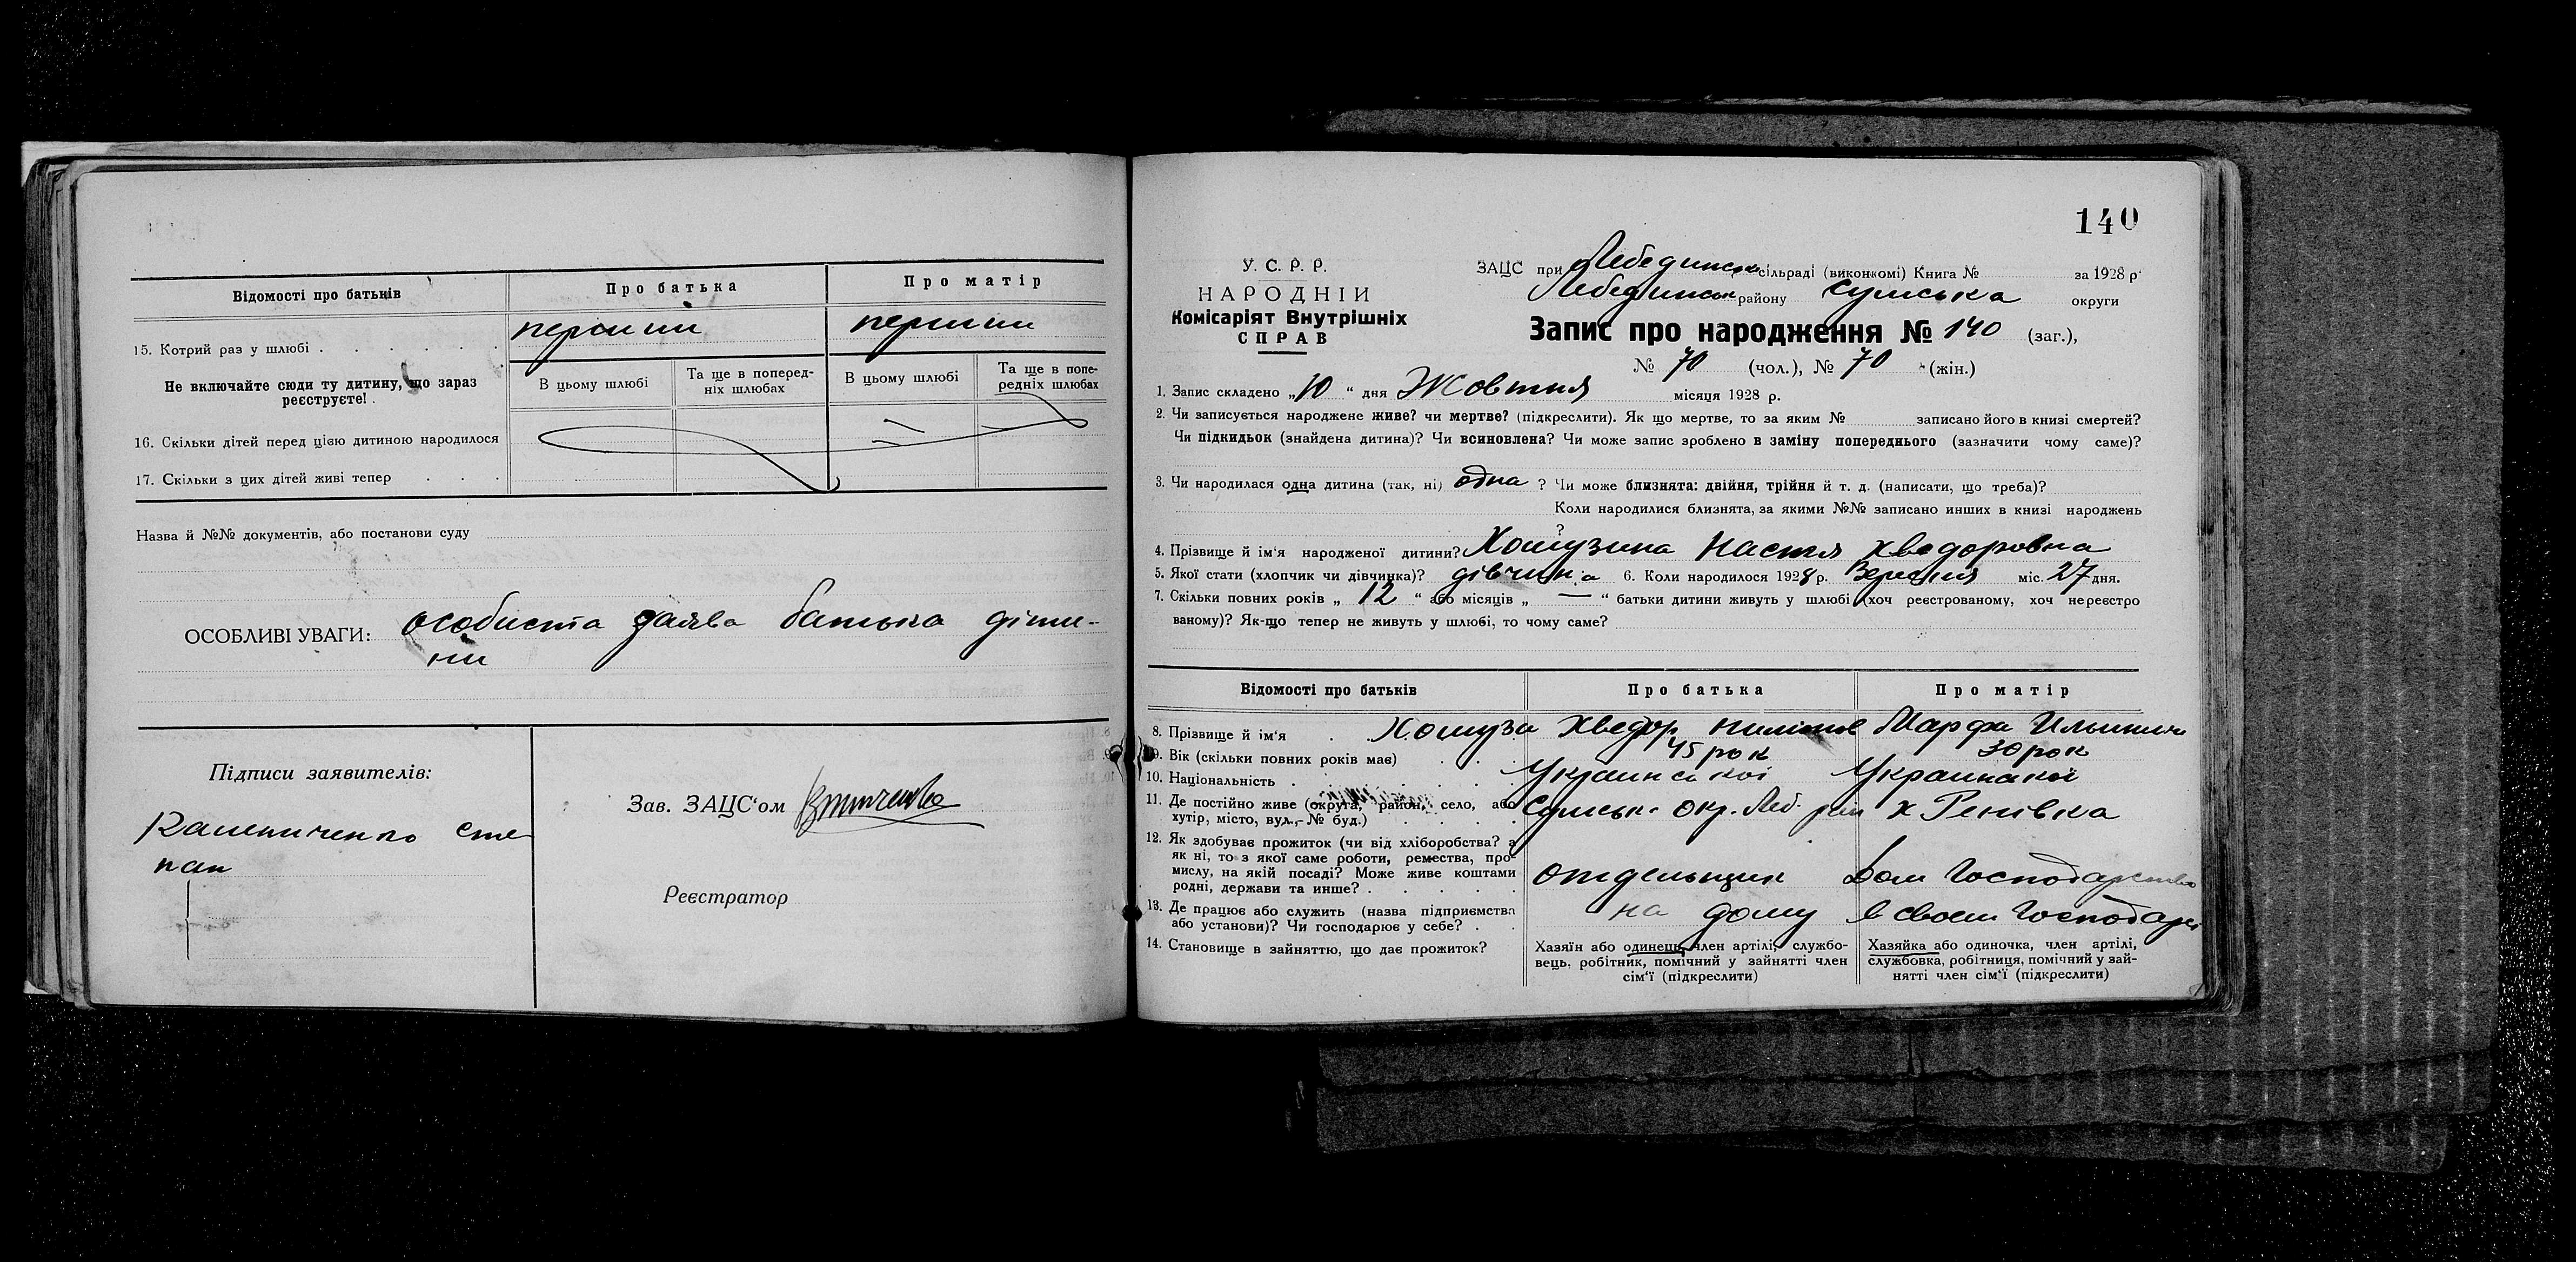 Відомості про батьків
Про батька
Про матір
15. Котрий раз у шлюбі
перший
перший
Не включайте сюди ту дитину, що зараз
реєструєте!
В цьому шлюбі
Та ще в поперед-
ніх шлюбах
В цьому шлюбі
Та ще в попе-
редніх шлюбах
16. Скільки дітей перед цією дитиною народилося
17. Скільки з цих дітей живі тепер
Назва й №№ документів, або постанови суду
ОСОБЛИВІ УВАГИ: особиста заява батька діти-
ни
Підписи заявителів:
Сте
пан
Зав. ЗАЦС'ом
Реєстратор
140
У. С. Р. Р.
НАРОДНІЙ
Комісаріят Внутрішніх
СПРАВ
ЗАЦС при Лебединск сільраді (виконкомі) Книга № за 1928 р.
Лебединськ району Сумська округи
Запис про народження № 140 (заг.),
№ 70 (чол.), № 70 (жін.)
1. Запис складено „10“ дня Жовтня місяця 1928 р.
2. Чи записується народжене живе? чи мертве? (підкреслити). Як що мертве, то за яким № записано його в книзі смертей?
Чи підкидьок (знайдена дитина)? Чи всиновлена? Чи може запис зроблено в заміну попереднього (зазначити чому саме)?
3. Чи народилася одна дитина (так, ні) одна ? Чи може близнята: двійня, трійня й т. д. (написати, що треба)?
Коли народилися близнята, за якими №№ записано инших в книзі народжень
?
4. Прізвище й ім'я народженої дитини? Настя Хведоровна
5. Якої стати (хлопчик чи дівчинка)? дівчина 6. Коли народилося 1928 р. Вересня міс. 27 дня.
7. Скільки повних років „ 12 “ або місяців „ — “ батьки дитини живуть у шлюбі (хоч реєстрованому, хоч нереєстро
ваному)? Як-що тепер не живуть у шлюбі, то чому саме?
Відомості про батьків
Про батька
Про матір
8. Прізвище й ім'я
Хведор
Марфа
9. Вік (скільки повних років має)
45 рок
30 рок
10. Національність
Украинскої
Украинскої
11. Де постійно живе (округа, район, село, або
хутір, місто, вул.,-№ буд.)
Сумськ. окр. Леб. рай х Ренівка
12. Як здобуває прожиток (чи від хліборобства? а
як ні, то з якої саме роботи, ремества, про-
мислу, на якій посаді? Може живе коштами
родні, держави та инше?
отдельщик
Дом Господарство
13. Де працює або служить (назва підприємства
або установи)? Чи господарює у себе?
на дому
в своем Господар
14. Становище в зайняттю, що дає прожиток?
Хазяїн або одинець, член артілі, службо-
вець, робітник, помічний у зайнятті член
сім'ї (підкреслити)
Хазяйка або одиночка, член артілі,
службовка, робітниця, помічний у зай-
нятті член сім'ї (підкреслити)